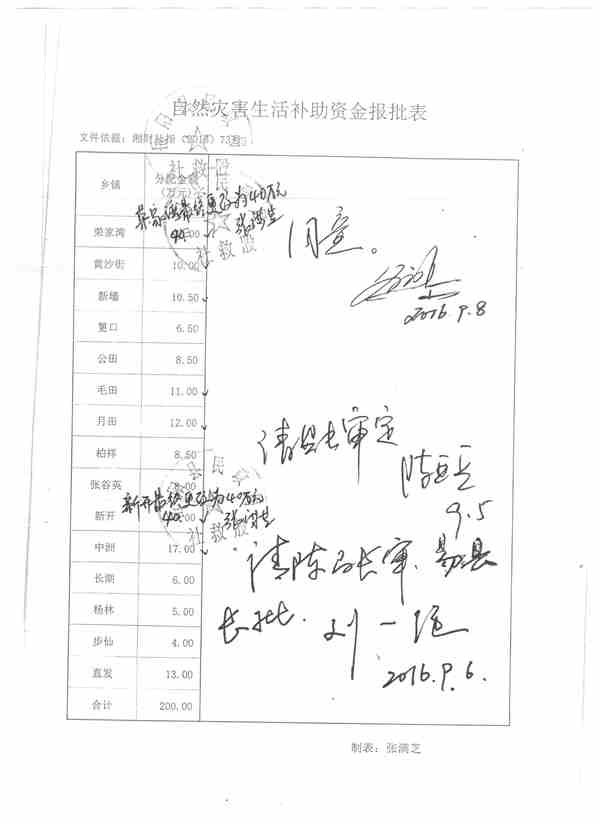 自然灾害生活补助资金报批表
文件依据：湘财社指
乡镇 分配金额（万元）
荣家湾最终更改为40万元
荣家湾 40.00
黄沙街 10.00
新墙 10.50
筻口 6.50
公田 8.50
毛田 11.00
月田 12.00
柏祥 8.50
张谷英
新开最终更改为40万元
新开 40.
中洲 17.00
长湖 6.00
杨林 5.00
步仙 4.00
直发 13.00
合计 200.00
同意。
2016.9.8
请县长审定
9.5
请陈局长审、易县
长批.
2016.9.6.
社救股
社救股
制表：张满芝